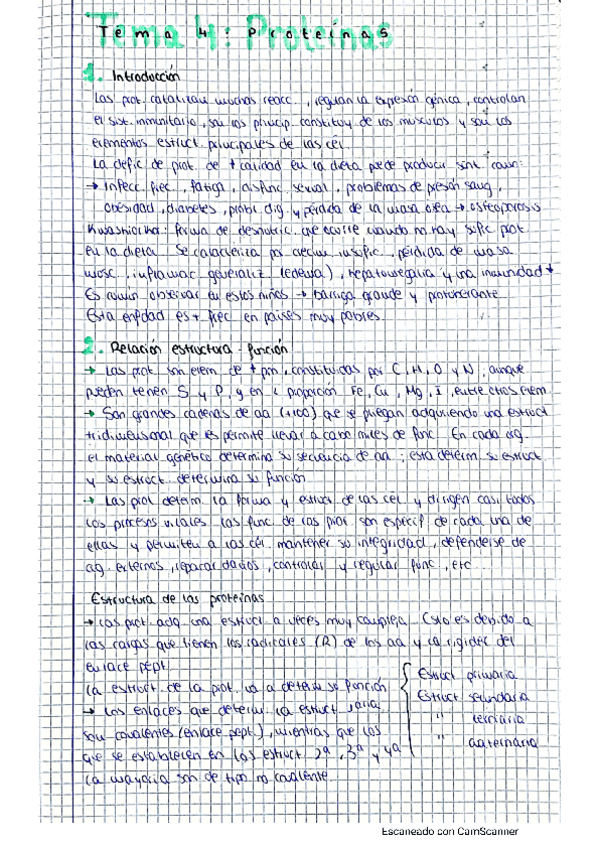 Tema 4: Proteínas
1. Introducción
Las prot. catalizan muchas reacc., regulan la expresión génica, controlan
el sist. inmunitario, son los princip. constituy de los músculos y son los
elementos estruct principales de las cel.
La defic de prot. de + calidad en la dieta puede producir sint. como:
→ Infecc frec, fatiga, disfunc sexual, problemas de presión sang,
obesidad, diabetes, probl dig. y pérdida de la masa ósea → osteoporosis
Kwashiorkor: forma de desnutric. que ocurre cuando no hay sufic prot
en la dieta. Se caracteriza por crecim insufic, pérdida de masa
musc, inflamac generaliz (edema), hepatomegalia y una inmunidad ↓
Es común observar en estos niños → barriga grande y protuberante
Esta enfdad es + frec en países muy pobres.
2. Relación estructura - función
→ Las prot. son elem de + pm, constituidas por C, H, O y N, aunque
pueden tener S y P, y en < proporción Fe, Cu, Mg, I, entre otros elem
→ Son grandes cadenas de aa (+100) que se pliegan adquiriendo una estruct
tridimensional que les permite llevar a cabo miles de func. En cada org.
el material genético determina su secuencia de aa; esta determ. su estruct
y su estruct. determina su función
→ Las prot determ. la forma y estruct de las cel y dirigen casi todos
los procesos vitales. Las func de las prot son especif de cada una de
ellas y permiten a las cél. mantener su integridad, defenderse de
ag. externos, reparar daños, controlar y regular func, etc...
Estructura de las proteínas
→ Las prot adq una estruct a veces muy compleja. Esto es debido a
las cargas que tienen los radicales (R) de los aa y la rigidez del
enlace pept.
La estruct de la prot. va a determ su función
→ Los enlaces que determ. la estruct 1aria
son covalentes (enlace pept.), mientras que los
que se establecen en las estruct 2ª, 3ª y 4ª
la mayoría son de tipo no covalente.
Estruct primaria
Estruct secundaria
" terciaria
" cuaternaria
Escaneado con CamScanner